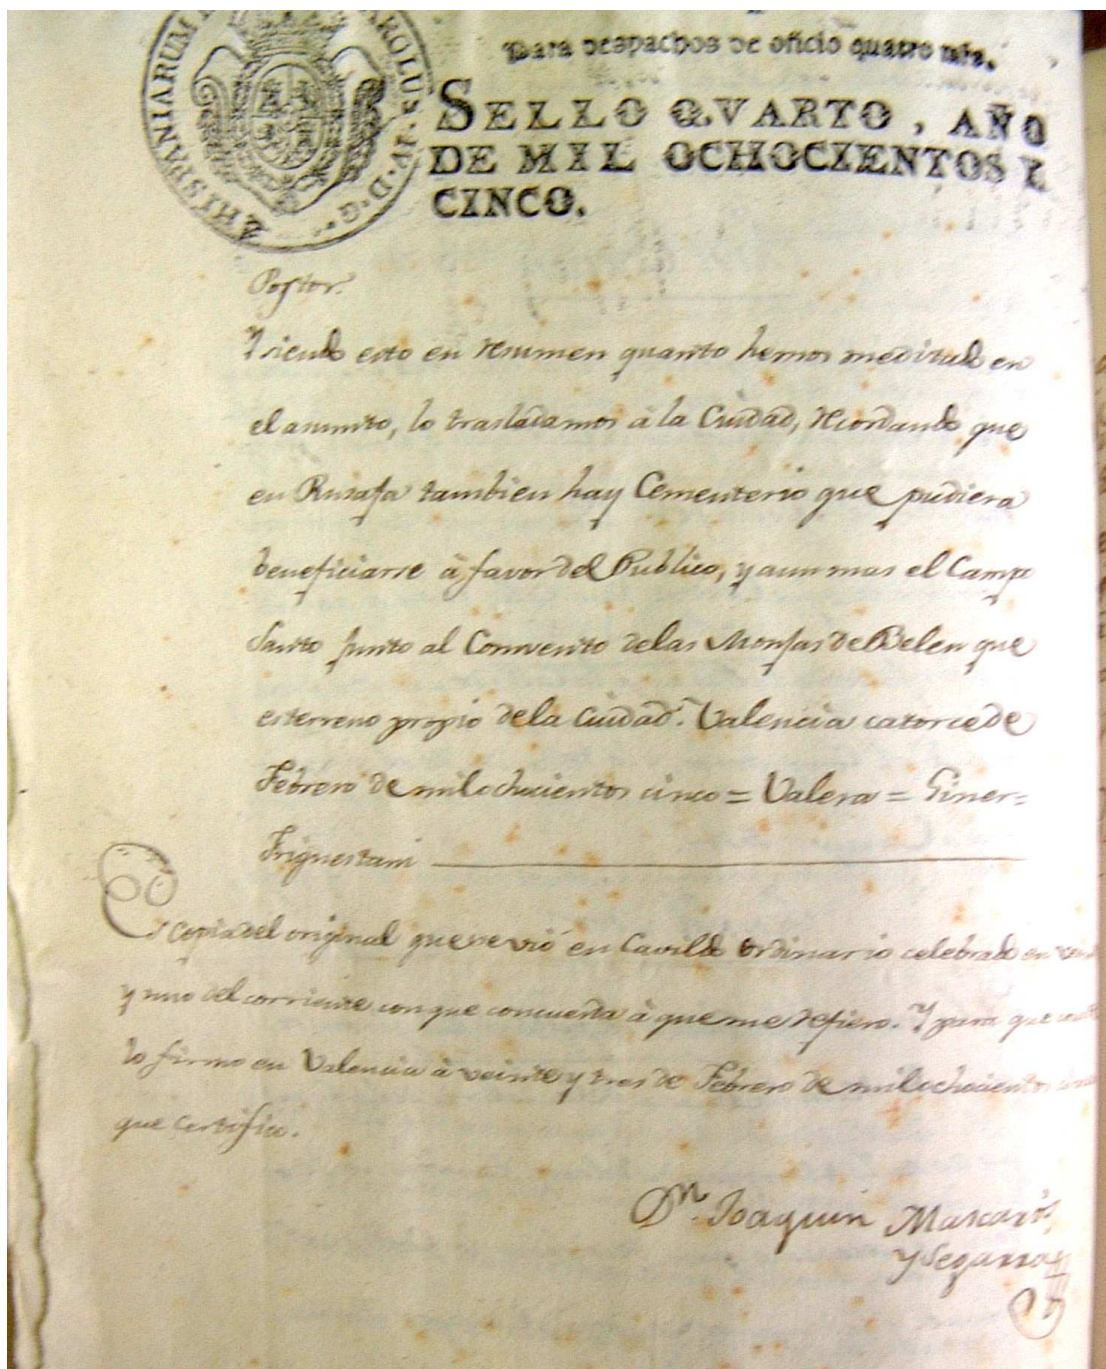 HISPANIARUM
CAROLUS. IV. D. G.
Para despachos de oficio quatro mrs.
SELLO QVARTO, AÑO
DE MIL OCHOCIENTOS Y
CINCO.
Postor.
Y siendo esto en resumen quanto hemos meditado en
el asunto, lo trasladamos à la Ciudad, recordando que
en Rusafa tambien hay Cementerio que pudiera
beneficiarse à favor del Publico, y aun mas el Campo
Santo junto al Convento delas Monjas de Belen que
es terreno propio dela Ciudad. Valencia catorce de
Febrero de mil ochocientos cinco = Valera = Giner =
Es Copia del original que se vió en Cavildo ordinario celebrado en
y uno del corriente con que concuerda à que me refiero. Y para que
lo firmo en Valencia à veinte y tres de Febrero de mil ochocientos
que certifico.
Dn. Joaquin Mascarós
y Segarra